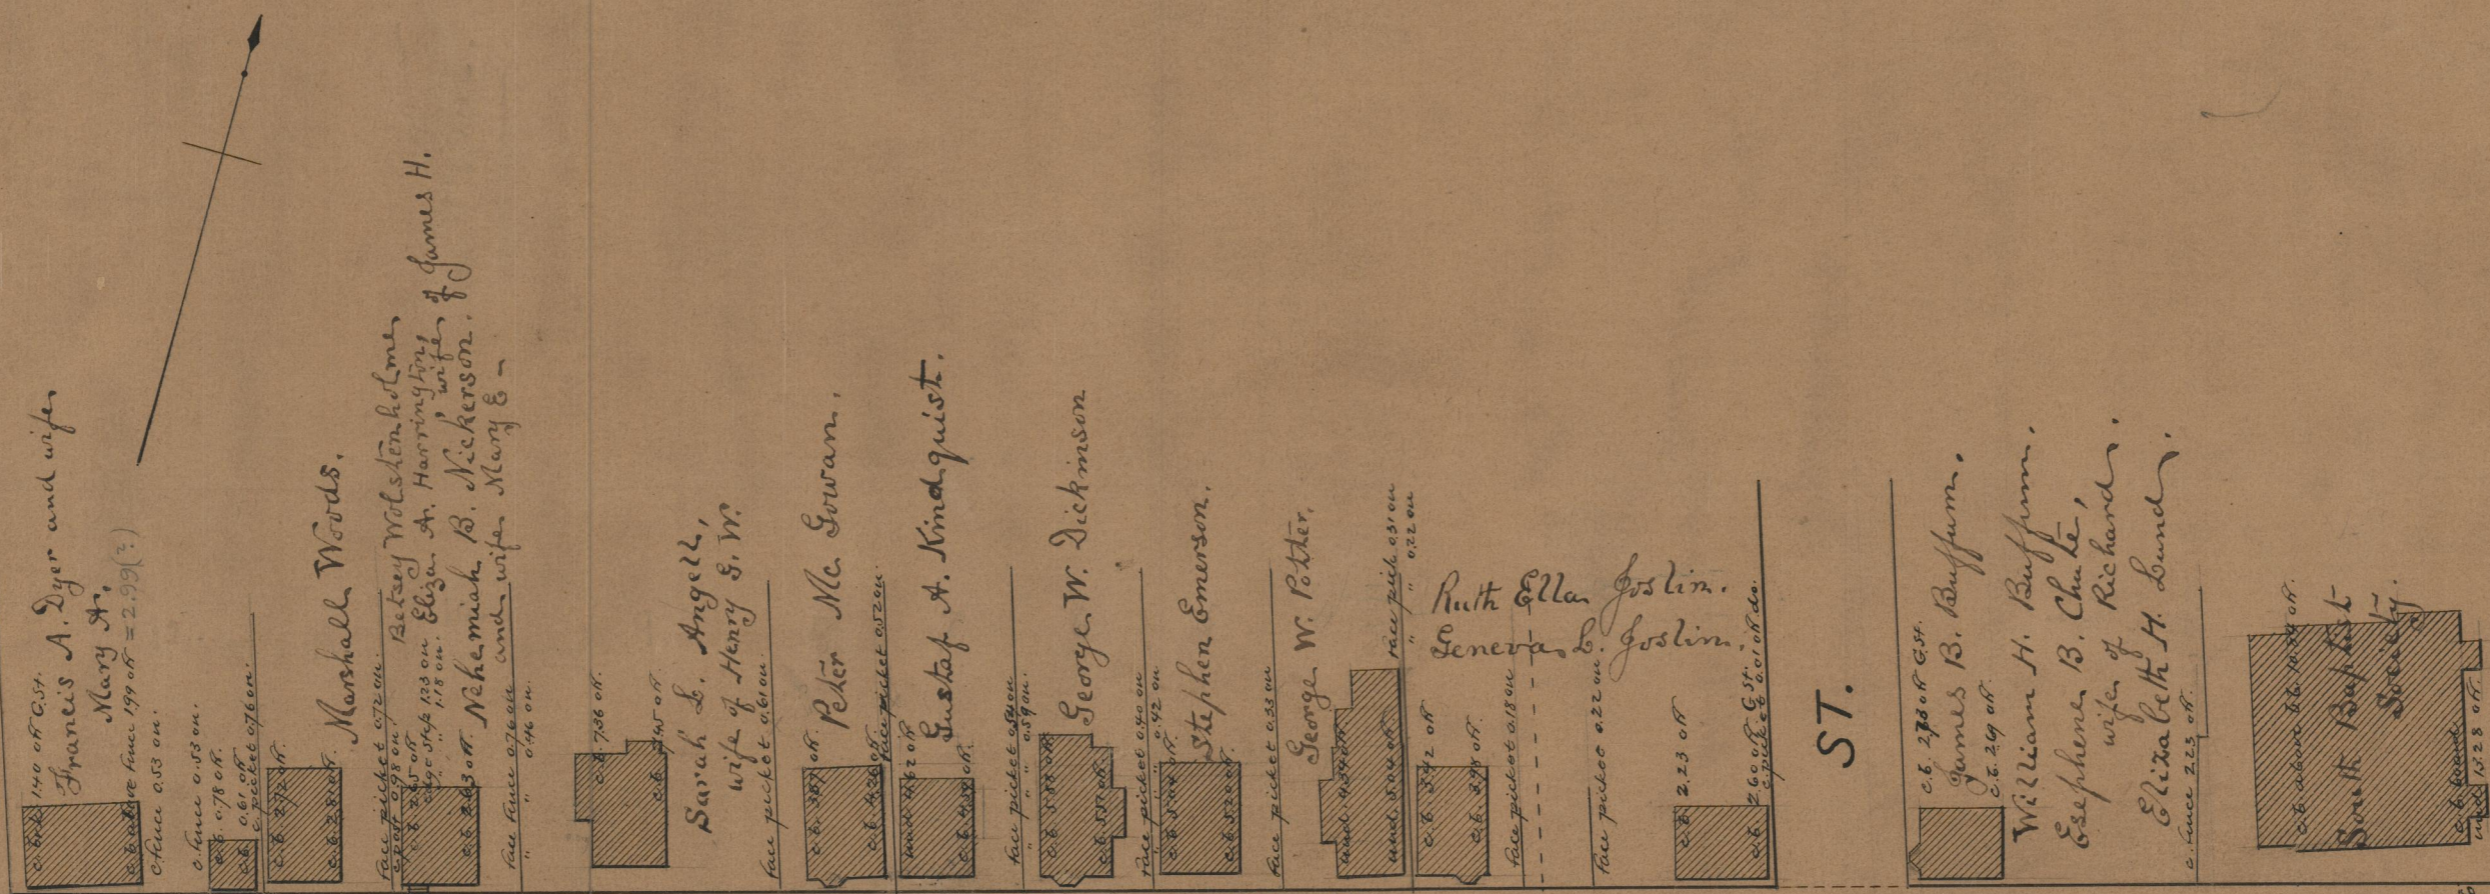 1.40 off G.St.
Francis A. Dyer and wife
Mary A.
c. b. above fence 1.99 off = 2.99(?)
c. fence 0.53 on.
c. fence 0.53 on.
c.b. 0.78 off.
c.b. 0.61 off
c. picket 0.76 on.
c.b. 2.72 off.
c.b. 2.81 off.
Marshall Woods.
face picket 0.72 on.
c. post 0.98 on.
Betsey Wolstenholme
c.b. 2.65 off
edge step 1.23 on
" " 1.18 on.
Eliza A. Harrington,
wife of James H.
Nehemiah B. Nickerson.
and wife Mary E-
face fence 0.76 on
" " 0.46 on.
c.b. 7.36 off.
c.b. 7.45 off
Sarah L. Angell,
wife of Henry G. W.
face picket 0.61 on.
c.b. 3.89 off.
c.b. 4.26 off.
Peter Mc Gowan.
face picket 0.52 on.
und. 4.62 off
c.b. 4.39 off.
Gustaf A. Kindquist.
face picket 0.54 on
" " 0.59 on.
c.b. 5.58 off.
c.b. 5.57 off.
George W. Dickinson
face picket 0.40 on
" " 0.42 on
c.b. 5.04 off.
c.b. 5.20 off
Stephen Emerson.
face picket 0.33 on
George W. Potter.
und. 4.94 off.
und. 5.04 off.
face pick 0.31 on
" " 0.22 on
c.b. 3.42 off
c.b. 3.98 off.
Ruth Ella Joslin.
Geneva L. Joslin.
face picket 0.18 on
face picket 0.22 on
c.b. 2.23 off
c.b. 2.60 off G St.
c. picket 0.01 off do.
ST.
c.b. 2.73 off G.St.
James B. Buffum.
c.b. 2.69 off.
William H. Buffum.
Esephene B. Chute,
wife of Richard.
Elizabeth H. Lund.
c. fence 2.23 off.
c.b. above b.b. 10.89 off.
South Baptist
Society.
c.b. board
und. 13.28 off.